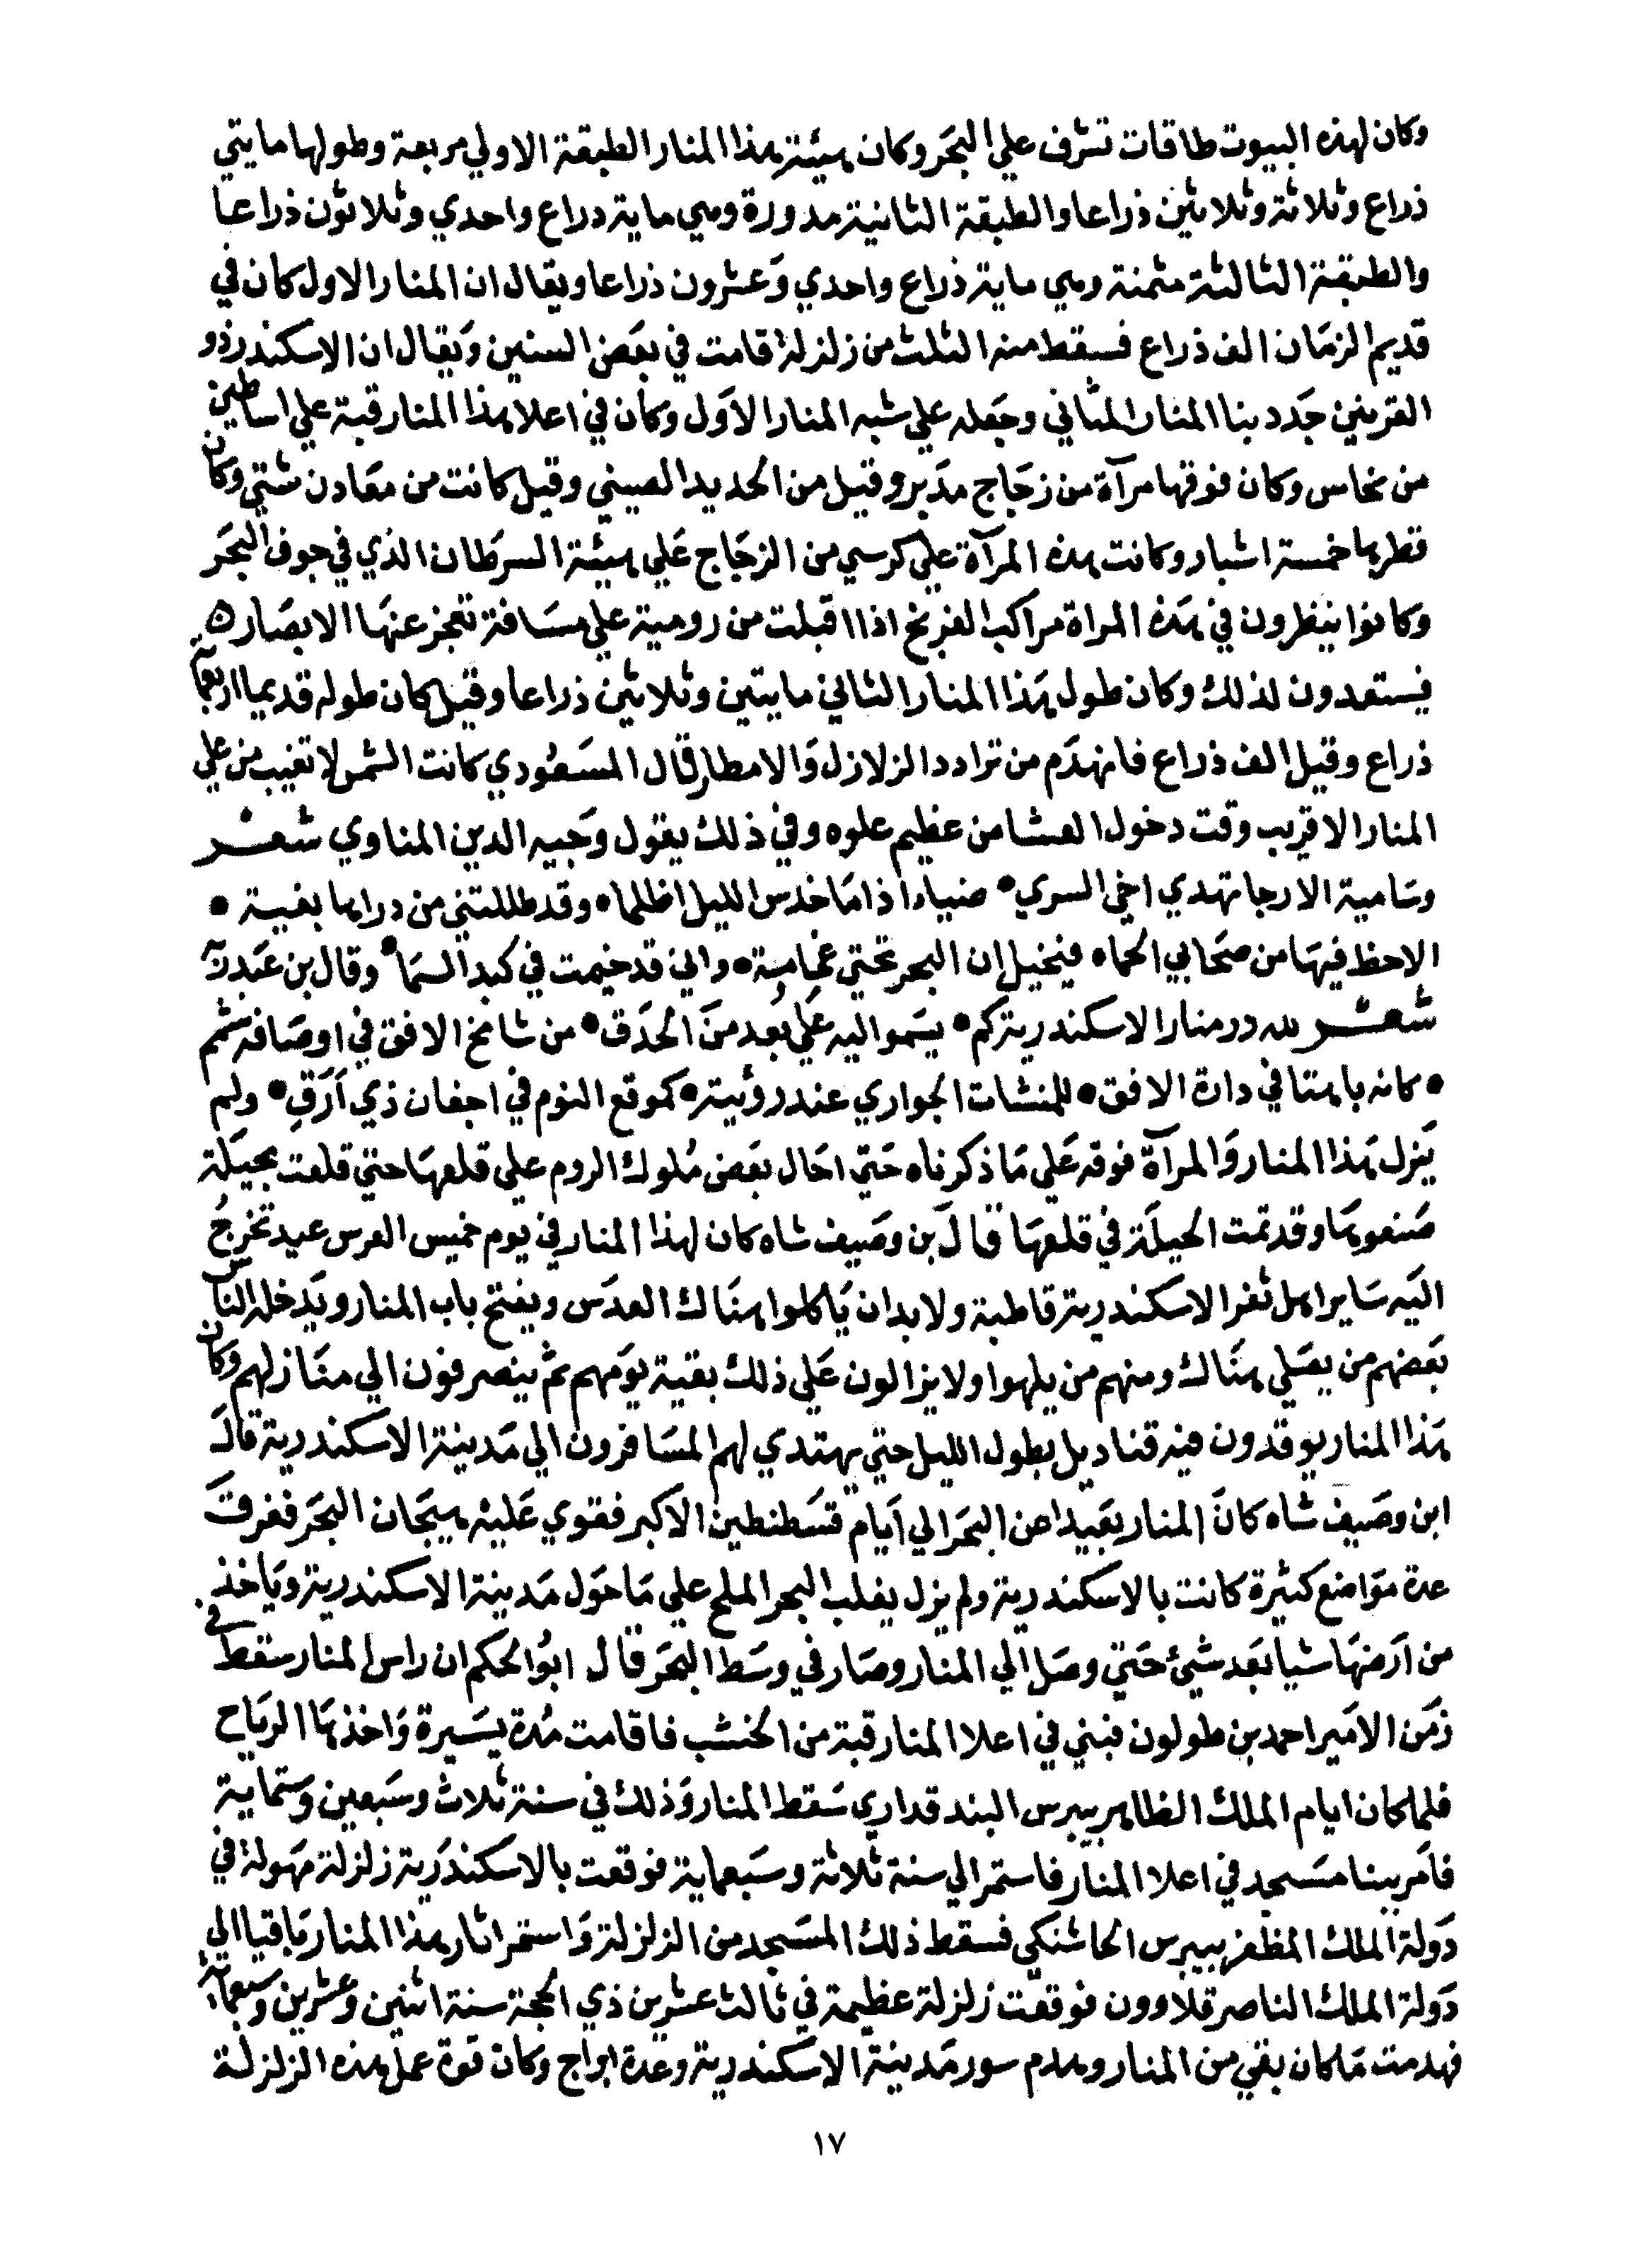 وكان لهذه البيوت طاقات تشرف علي البحَر وكان هيئة هذا المنار الطبقة الاولي مربعة وطولها مايتي
ذراع وثلاثة وثلاثين ذراعا والطبقة الثانية مدورة وهي ماية دراع واحدي وثلاثون ذراعا
والطبقة الثالثة مثمنة وهي ماية ذراع واحدي وَعشرون ذراعا ويقال ان المنار الاول كان في
قديم الزمَان الف ذراع فسقط منه الثلث من زلزلة اقامت في بعَض السنين وَيقال ان الاسكندر ذو
القرنين جَدد بنا المنار الثاني وجَعله علي شبه المنار الاوَل وكان في اعلا هذا المنار قبة علي اساطين
من نحاس وكان فوقها مرآة من زجَاج مدَبر وقيل من الحديد الصيني وقيل كانت من معَادن شتي وكان
قطرها خمسة اشبار وكانت هذه المرآة علي كرسي من الزجَاج عَلي هيئة السرطَان الذي في جوف البحَر
وكانوا ينظرون في هَذه المراة مراكب الفرنج اذا اقبلت من رومية علي مسَافة تعجز عنهَا الابصَار ه
فيستعدون لذلك وكان طول هَذا المنار الثاني مايتين وثلاثين ذراعا وقيل كان طوله قديما اربعماية
ذراع وقيل الف ذراع فانهدَم من ترادد الزلازل وَالامطار قال المسَعُودي كانت الشمس لا تغيب من علي
المنار الا قريب وقت دخول العشا من عظيم علوه وفي ذلك يقول وَجيه الدين المناوي شعـر
وسَامية الارجا تهدي اخي السري • ضياءا ذا مَا خدس الليل اظلما • وقد ظللتني من دراها بغيبة •
الاحظ فيهَا من صحَابي الحماه فيخيل ان البحر تحتي غمامة • واني قد خيمت في كبد السمَا • وقال بن عَبد
شعـر لله در منار الاسكندرية كم • يسَموا اليه عَلي بُعد منَ الحدَق • من شامخ الافق في اوصَافه شمم
• كانه باهتا في دارة الافق • للمنشات الجواري عند رؤيته • كموقع النوم في اجفان ذي اَرَق • ولم
يَزل هَذا المنار وَالمرآة فوقه عَلي مَا ذكرناه حَتي احَال بعَض مُلوك الروم علي قلعهَا حتي قلعت بحيلَة
صَنعوهَا وقد تمت الحيلَة في قلعهَا قالَ بن وصَيف شاه كان لهذا المنار في يوم خميس العدس عيد تخرجُ
اليَه سَاير اهل ثغر الاسكندرية قاطبة ولا بد ان يَاكلوا هنَاك العدَس ويفتح باب المنار ويَدخله الناس
بعَضهم من يصَلي هنَاك ومنهم من يلهوا ولا يزالون عَلي ذلك بقية يوَمهم ثم ينصرفون الي منَازلهم وكان
هَذا المنار يوقدون فيه قناديل بطول الليل حتي يهتدي لهم المسَافرون الي مَدينة الاسكندرية قالَ
ابن وصَيف شاه كانَ المنار بعَيدا عن البحَر الي اَيام قسَطنطين الاَكبر فقوي عَليْه هيجَان البحَر فغرقتَ
عدة موَاضع كثيرة كانت بالاسكندرية ولم يزل يغلب البحر الملح علي مَا حَوَل مَدينة الاسكندرية ويَاخذ
من اَرضهَا شيا بعَد شيئ حَتي وصَل الي المنار وصَار في وسَط البحَر قال ابوُ الحكم ان راس المنار سقط في
زمَن الامَير احمد بن طولون فبني في اعلا المنار قبة من الخشب فاقامت مُدة يسَيرة وَاخذهَا الريَاح
فلما كان ايام الملك الظاهر بيبرس البندقداري سَقط المنار وَذلك في سنة ثلاث وسَبعين وَستماية
فاَمر ببنا مسَجد في اعلا المنار فاستمر الي سنة ثلاثة وسَبعماية فوقعت بالاسكندرَية زلزلة مهَولة في
دَولة الملك المظفر بيبرس الجاشنكي فسقط ذلك المسَجد من الزلزلة وَاستمر اثار هذا المنار بَاقيا الي
دَولة الملك الناصر قلاوون فوقعت زلزلة عظيمة في ثالث عشرين ذي الحجة سنة اثنين وعشرين وسبعماية
فهدمت مَا كان بقي من المنار وهدم سور مَدينة الاسكندرية وعدة ابراج وكان قوة عمل هذه الزلزلة
١٧